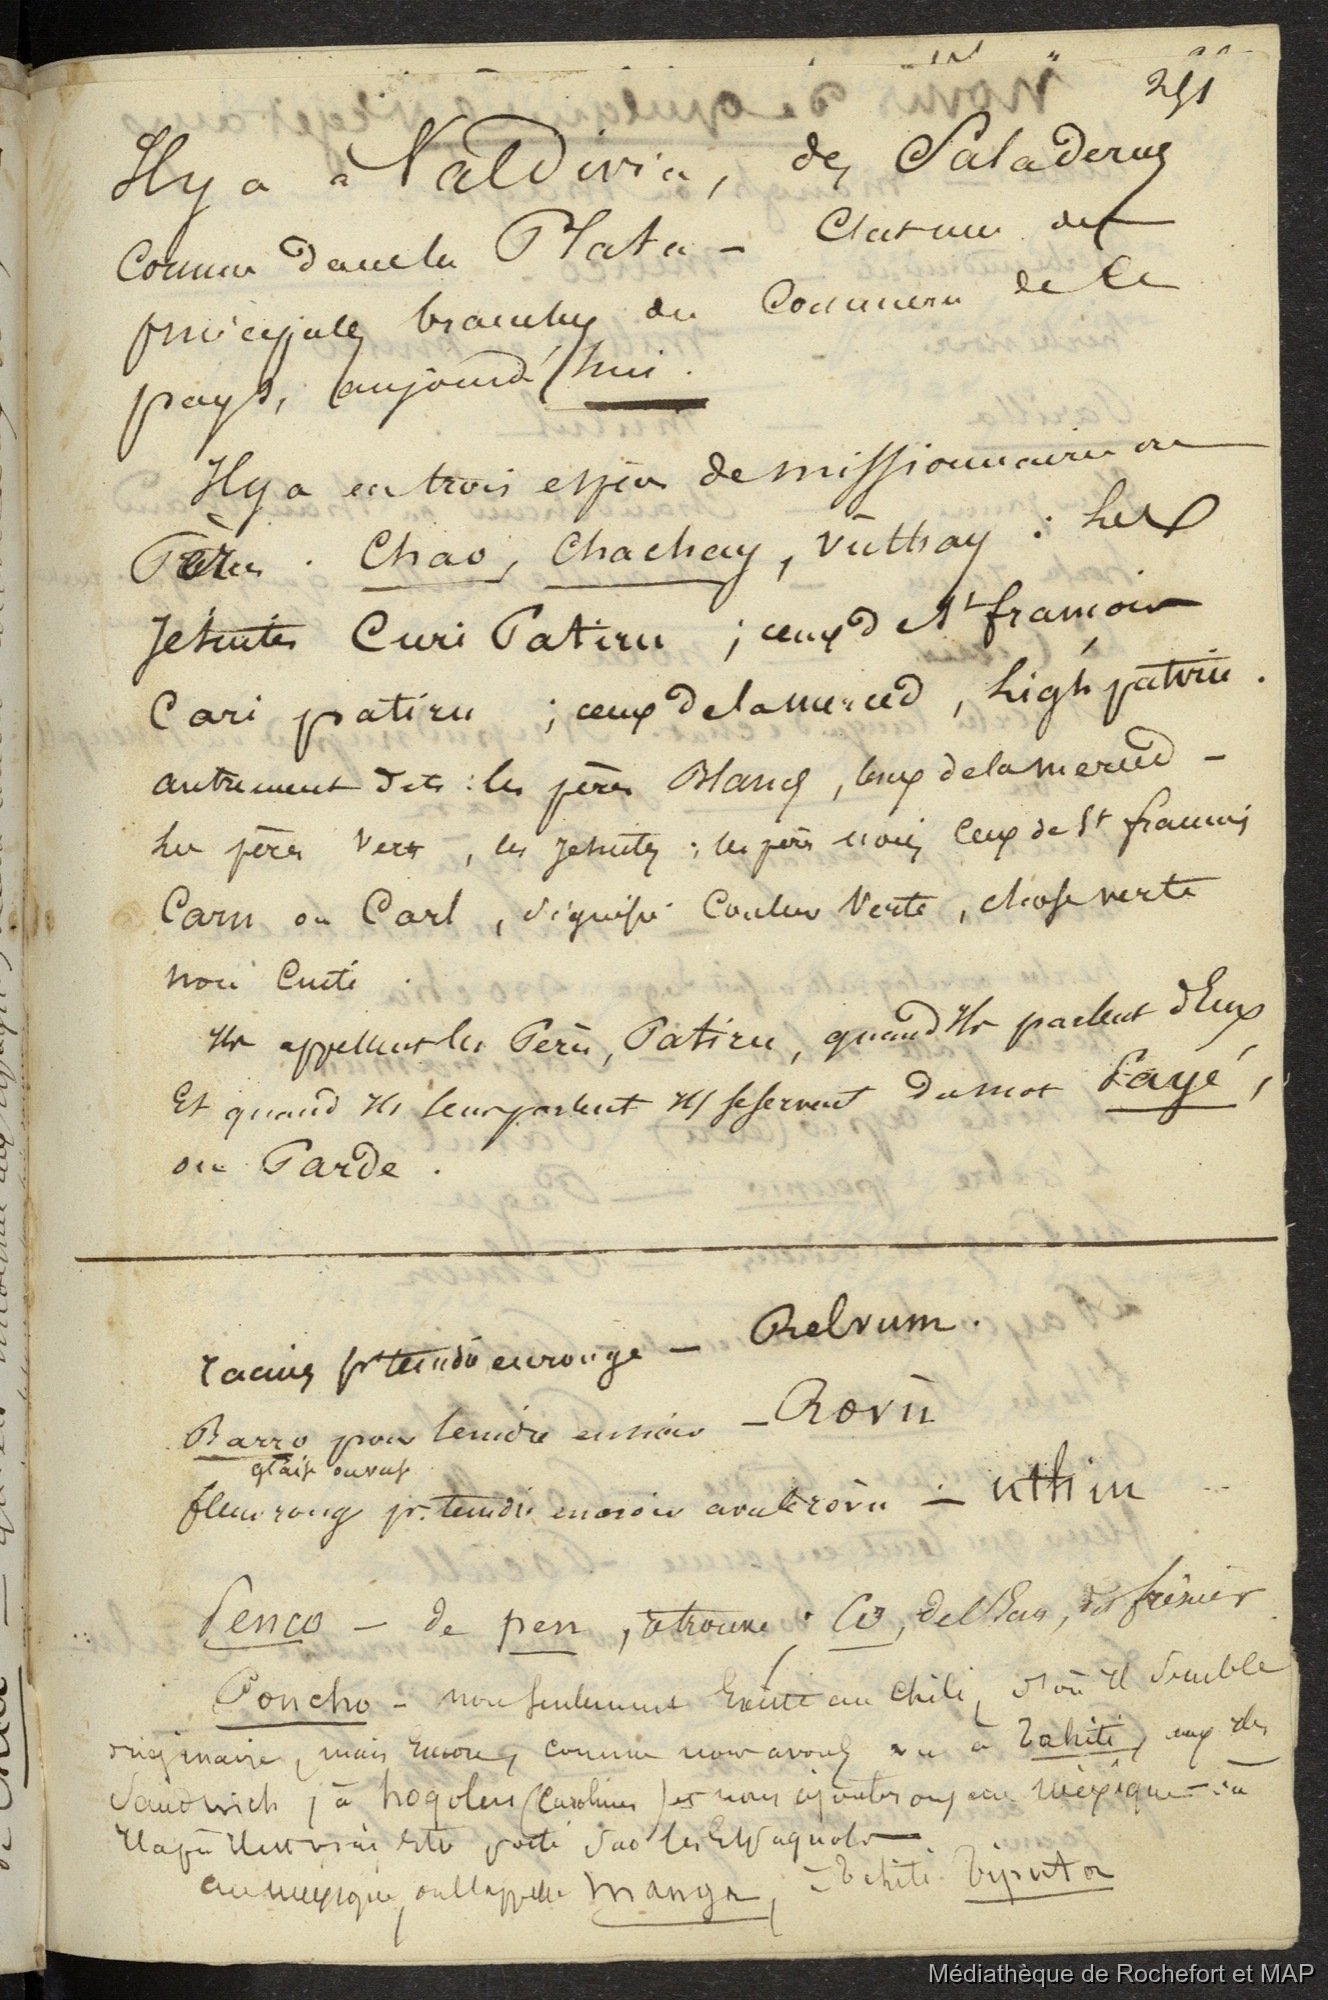 251
Il y a à Valdivia, des Saladerus
comme dans la Plata – C'est une des
principales branches du Commerce de ce
pays, aujourd'hui.
Il y a eu trois espèces de missionnaires ou
Pères. Chao, Chachay, Vuthay : les
Jésuites Curi Patiru ; ceux de St françois
Cari patiru ; ceux de la merced, Ligh patiru.
autrement dits : les pères Blancs, ceux de la merced –
les pères Verts, les Jésuites ; les pères noirs ceux de St françois
Caru ou Carl, signifie Couleur Verte, chose verte
non Cuite.
Ils appellent les Pères, Patiru, quand ils parlent d'Eux
Et quand ils leur parlent ils se servent du mot Payé,
ou Parde.
racines pr teindre en rouge – Relvum.
Barro pour teindre en noir – Rovù
fleur rouge pr. teindre en noir avec le rovu – uthiu
Penco – de pen, je trouve ; Co, de l'Eau, dit frézier
Poncho – non seulement Existe au Chili, d'où il semble
originaire, mais Encore, comme nous avons vu à Tahiti, aux îles
Sandwich, à hogoleu (Carolines) et nous ajouterons au Méxique – où
il a pu il est vrai être porté par les Espagnols
au mexique, on l'appelle manga, à Tahiti Tiputa
Médiathèque de Rochefort et MAP